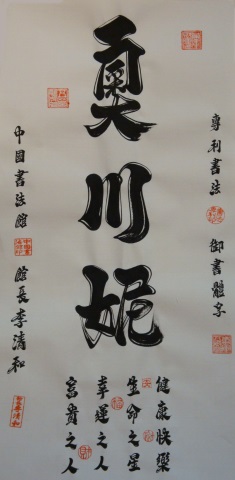 專利書法 御書體字
奧川妮
健康快樂
生命之星
幸運之人
富貴之人
中國書法館 館長李清和